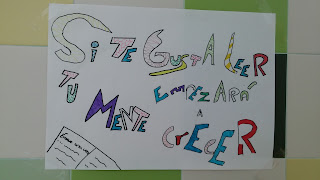 Si TE GUSTA LEER
TU MENTE EMPEZARÁ
A
CRECER